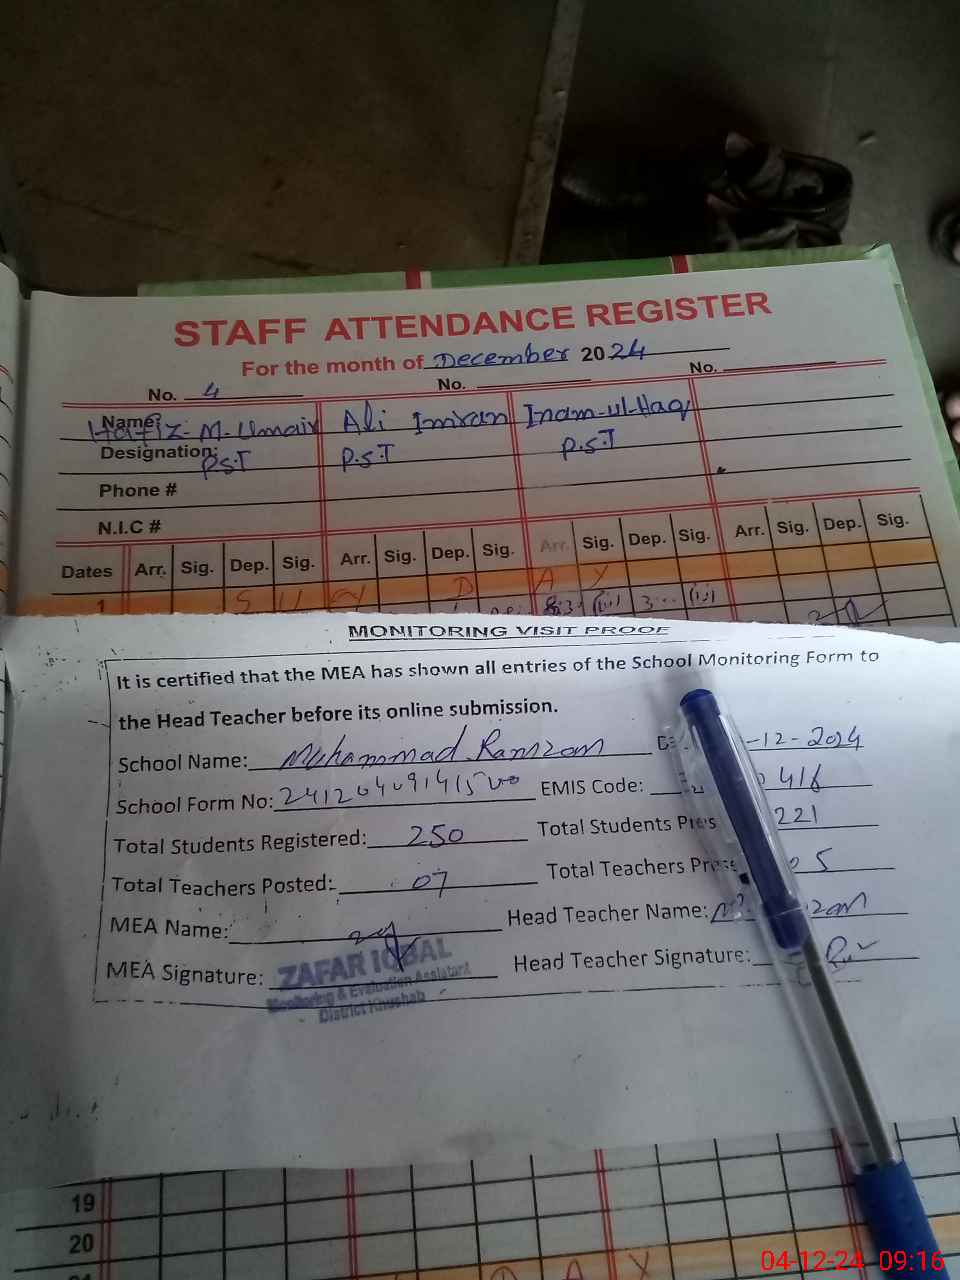 STAFF ATTENDANCE REGISTER
For the month of December 2024
No. 4 No. No.
Name: Hafiz-M-Umair Ali Imran Inam-ul-Haq
Designation: P.S.T P.S.T P.S.T
Phone #
N.I.C #
Dates Arr. Sig. Dep. Sig. Arr. Sig. Dep. Sig. Arr. Sig. Dep. Sig. Arr. Sig. Dep. Sig.
S U N D A Y
1
MONITORING VISIT PROOF
It is certified that the MEA has shown all entries of the School Monitoring Form to
the Head Teacher before its online submission.
School Name: Muhammad Ramzan -12-2024
School Form No: EMIS Code: 416
Total Students Registered: 250 Total Students Pres 221
Total Teachers Posted: 07 Total Teachers Pres 05
MEA Name: Head Teacher Name:
MEA Signature: Head Teacher Signature:
ZAFAR IQBAL
Monitoring & Evaluation Assistant
District Khushab
19
20
21 D A Y
04-12-24 09:16